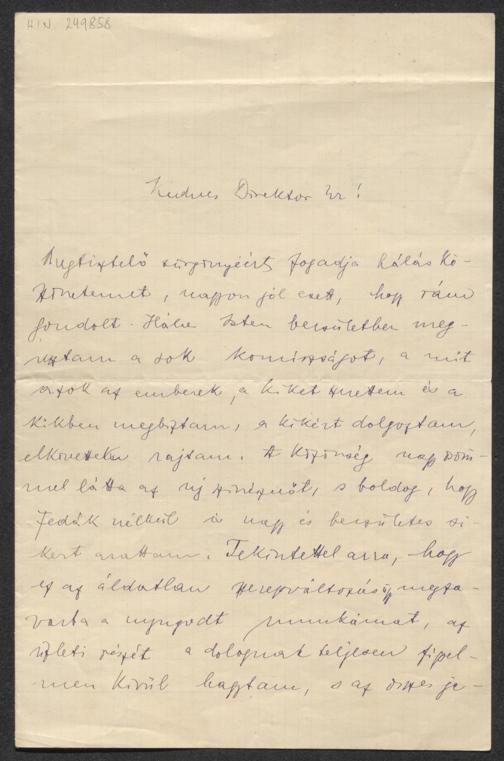 HIN 249858
Kedves Direktor Úr!
Megtisztelő sürgönyéért fogadja hálás kö-
szönetemet, nagyon jól esett, hogy rám
gondolt. Hála Isten becsületben meg-
úsztam a sok komiszságot, a mit
azok az emberek, a kiket szeretem és a
kikben megbiztam, a kikért dolgoztam,
elkövettek rajtam. A közönség nagy öröm-
mel látta az új színésznőt, s boldog, hogy
Fedák nélkül is nagy és becsületes si-
kert arattam. Tekintettel arra, hogy
ez az áldatlan szerepváltozás így megza-
varta a nyugodt munkámat, az
üzleti részét a dolognak teljesen figyel-
men kívül hagytam, s az összes je-